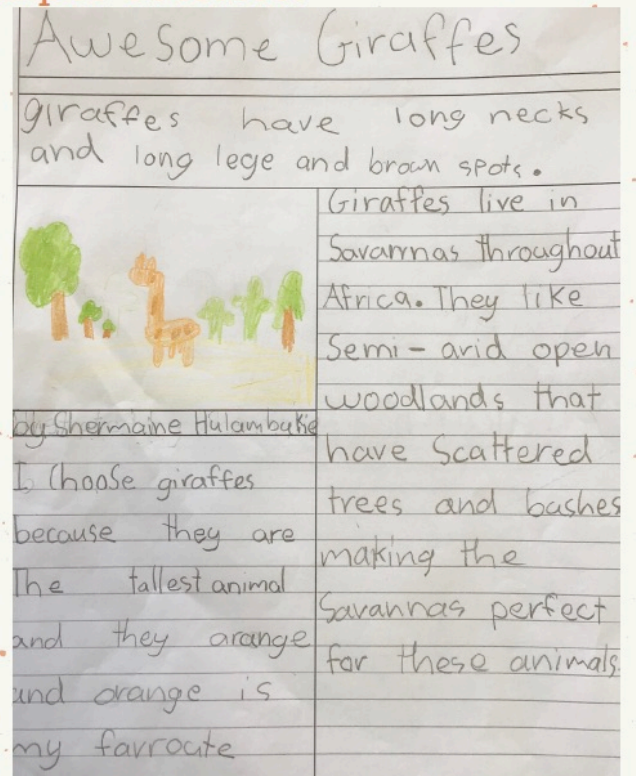 Awesome Giraffes
giraffes have long necks
and long lege and brown spots.
by Shermaine Hulambukie
I Choose giraffes
because they are
The tallest animal
and they orange
and orange is
my favroute
Giraffes live in
Savannas throughout
Africa. They like
Semi-arid open
woodlands that
have Scattered
trees and bushes
making the
Savannas perfect
for these animals.